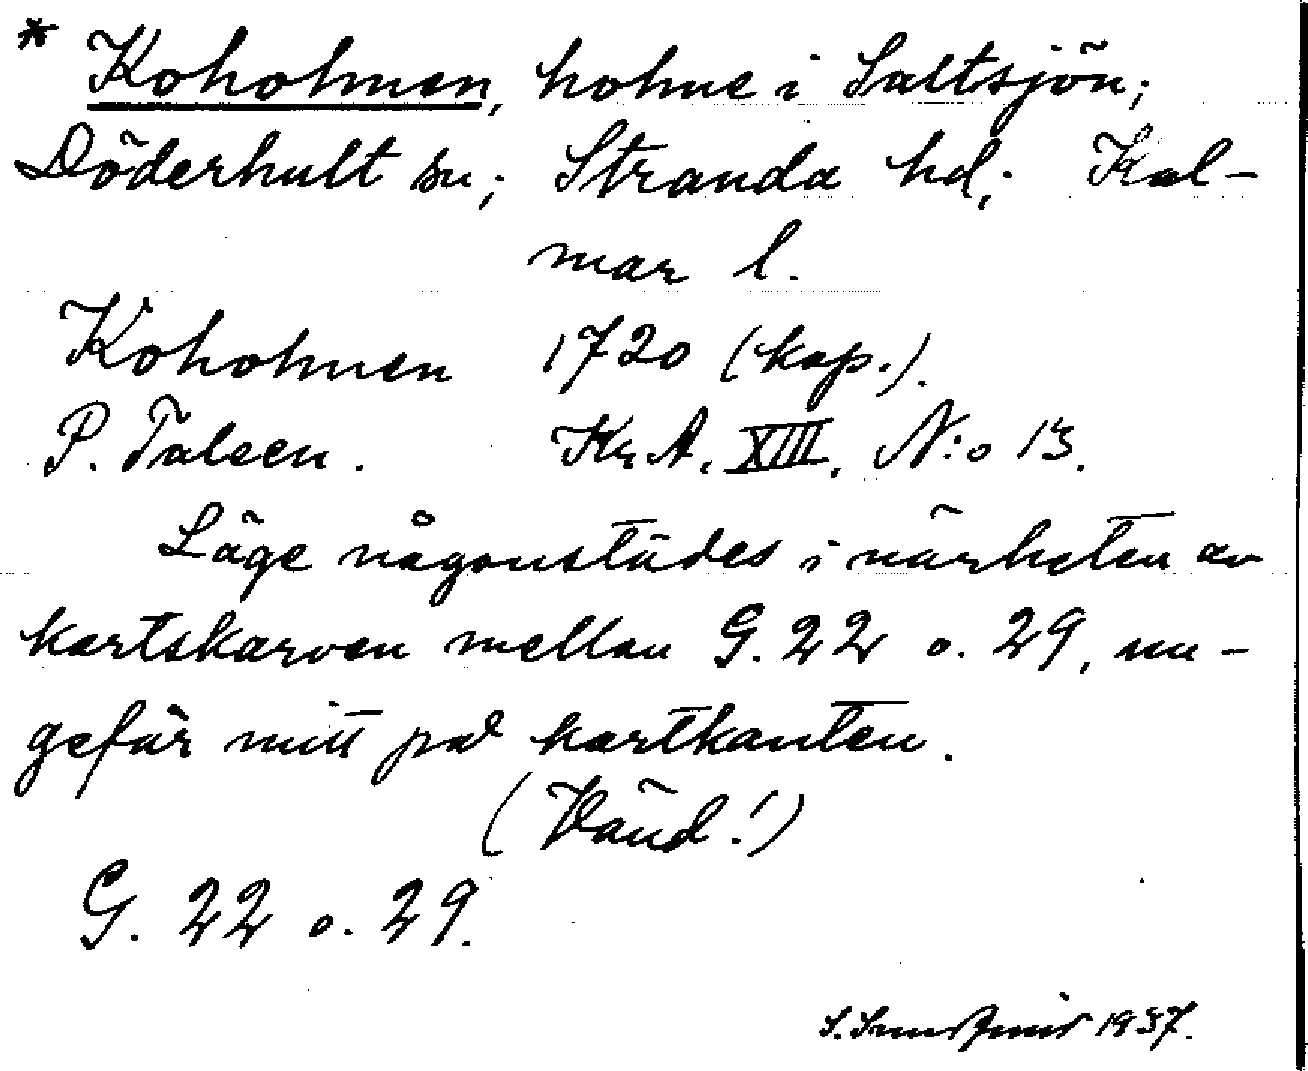 * Koholmen, holme i Saltsjön;
Döderhult sn; Stranda hd; Kal-
mar l.
Koholmen 1720 (kop.).
P. Taleen. Kr. A. XIII. N:o 13.
Läge någonstädes i närheten av
kartskarven mellan G. 22 o. 29, un-
gefär mitt på kartkanten.
(Vänd!)
G. 22 o. 29.
1937.